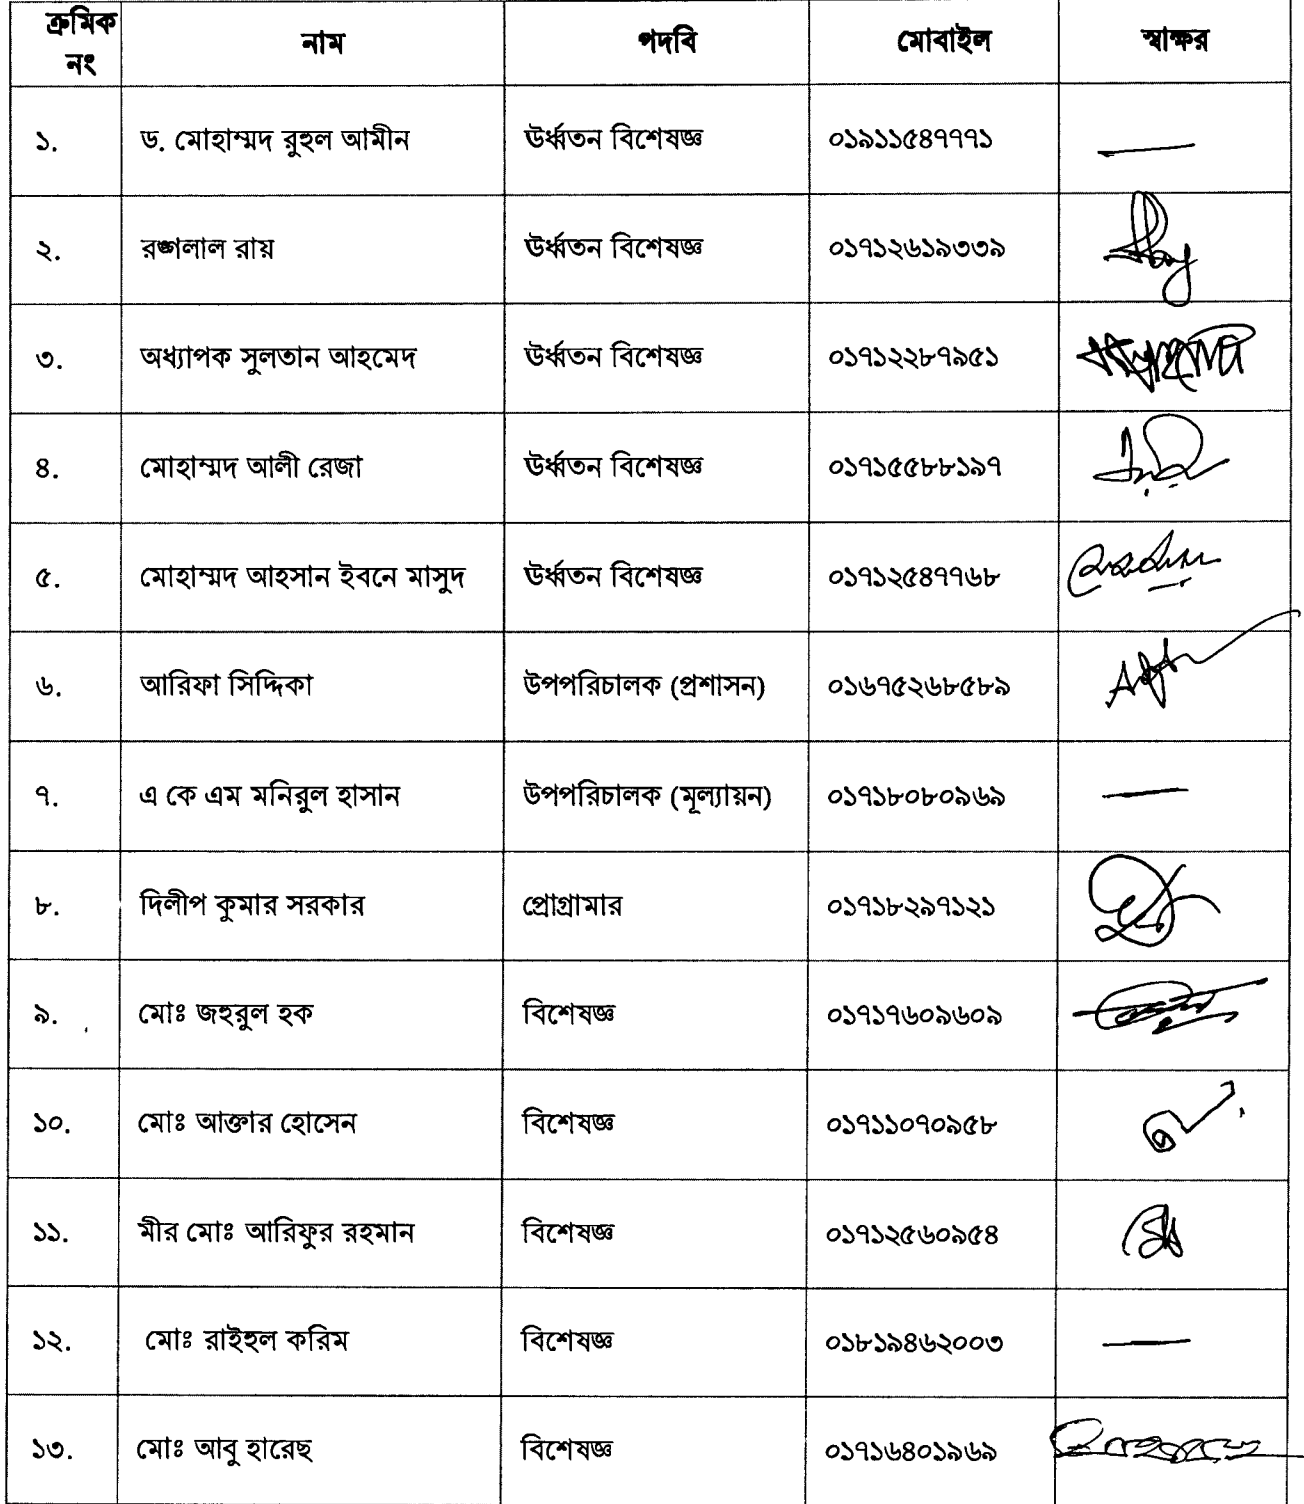 ক্রমিক নং নাম পদবি মোবাইল স্বাক্ষর
১. ড. মোহাম্মদ রুহুল আমীন ঊর্ধ্বতন বিশেষজ্ঞ ০১৯১১৫৪৭৭৭১ —
২. রঙ্গলাল রায় ঊর্ধ্বতন বিশেষজ্ঞ ০১৭১২৬১৯৩৩৯
৩. অধ্যাপক সুলতান আহমেদ ঊর্ধ্বতন বিশেষজ্ঞ ০১৭১২২৮৭৯৫১
৪. মোহাম্মদ আলী রেজা ঊর্ধ্বতন বিশেষজ্ঞ ০১৭১৫৫৮৮১৯৭
৫. মোহাম্মদ আহসান ইবনে মাসুদ ঊর্ধ্বতন বিশেষজ্ঞ ০১৭১২৫৪৭৭৬৮
৬. আরিফা সিদ্দিকা উপপরিচালক (প্রশাসন) ০১৬৭৫২৬৮৫৮৯
৭. এ কে এম মনিরুল হাসান উপপরিচালক (মূল্যায়ন) ০১৭১৮০৮০৯৬৯ —
৮. দিলীপ কুমার সরকার প্রোগ্রামার ০১৭১৮২৯৭১২১
৯. মোঃ জহুরুল হক বিশেষজ্ঞ ০১৭১৭৬০৯৬০৯
১০. মোঃ আক্তার হোসেন বিশেষজ্ঞ ০১৭১১০৭০৯৫৮
১১. মীর মোঃ আরিফুর রহমান বিশেষজ্ঞ ০১৭১২৫৬০৯৫৪
১২. মোঃ রাইহুল করিম বিশেষজ্ঞ ০১৮১৯৪৬২০০৩ —
১৩. মোঃ আবু হারেছ বিশেষজ্ঞ ০১৭১৬৪০১৯৬৯